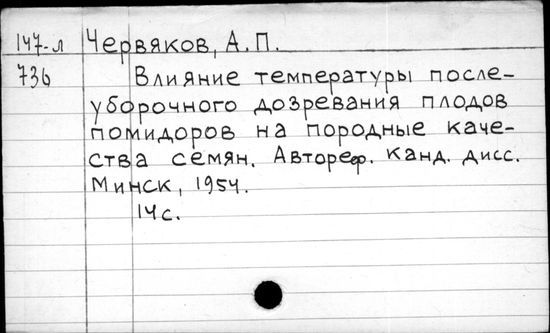 147-л Червяков, А.П.
736 Влияние температуры после-
уборочного дозревания плодов
помидоров на породные каче-
ства семян. Автореф. канд. дисс.
Минск, 1954.
14 с.